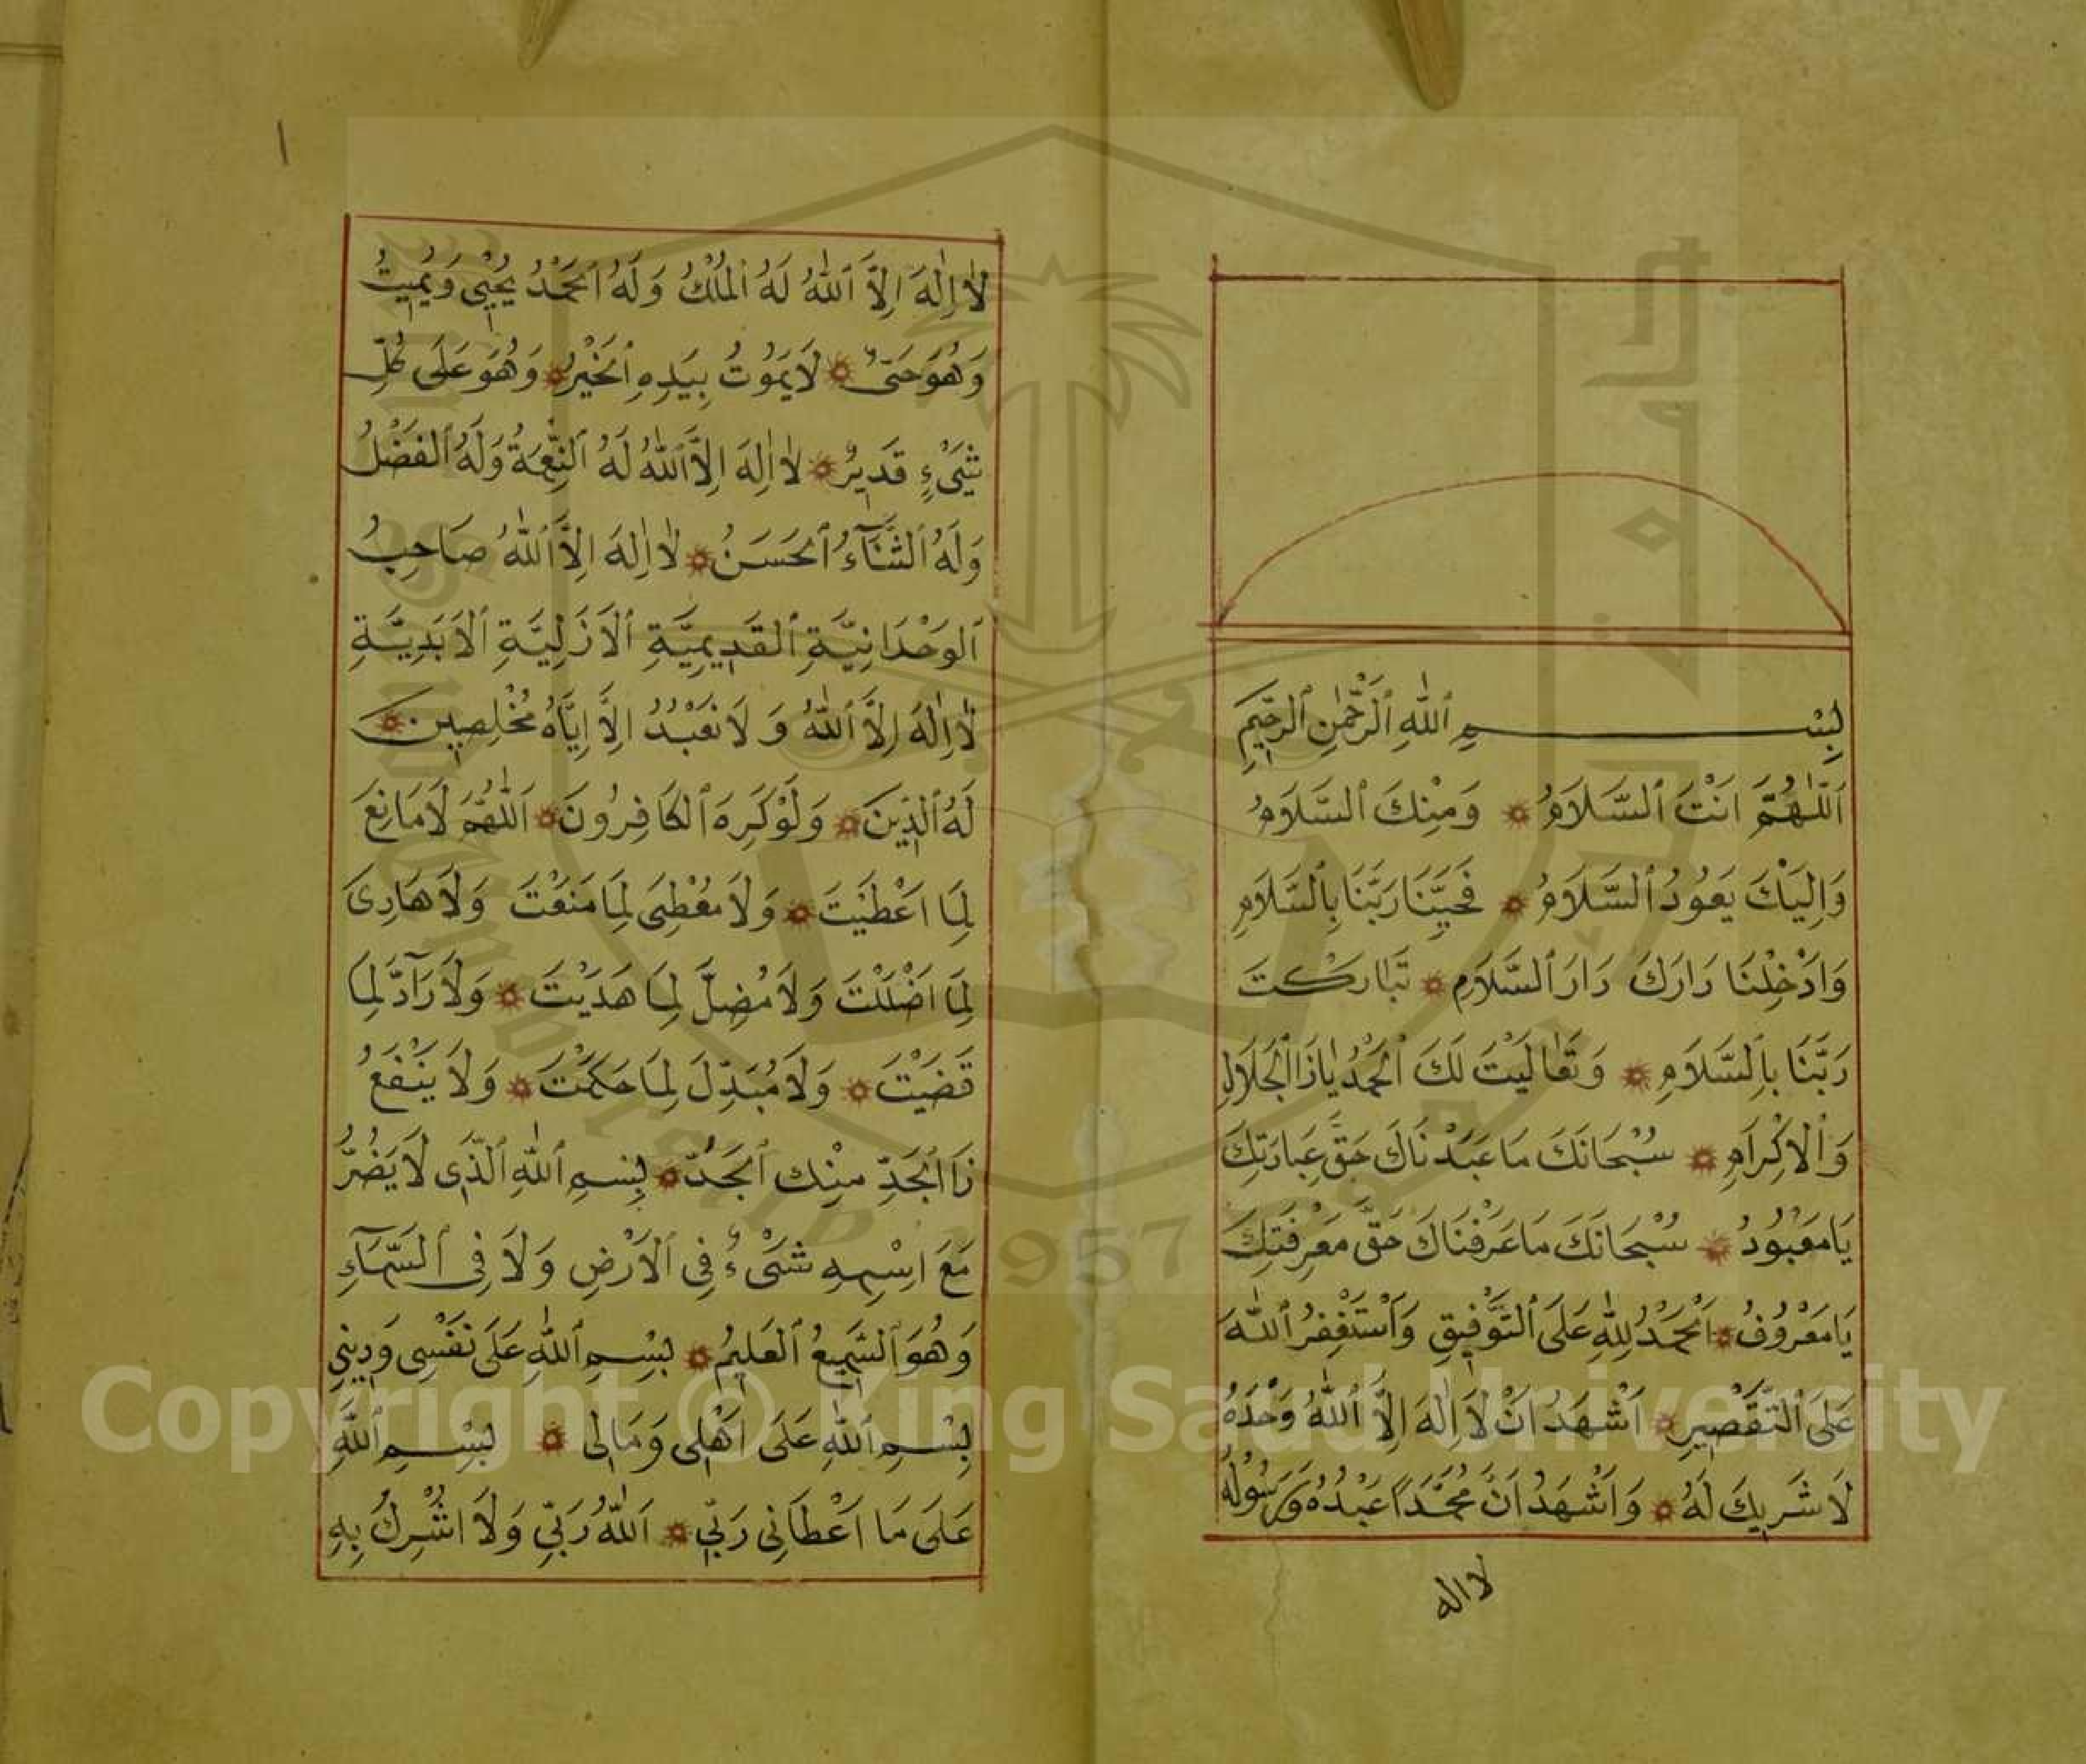 بِسْــــــمِ اللّٰهِ الرَّحْمٰنِ الرَّحِيمِ
اَللّٰهُمَّ اَنْتَ السَّلَامُ ۞ وَمِنْكَ السَّلَامُ
وَاِلَيْكَ يَعُودُ السَّلَامُ ۞ فَحَيِّنَا رَبَّنَا بِالسَّلَامِ
وَادْخِلْنَا دَارَكَ دَارَ السَّلَامِ ۞ تَبَارَكْتَ
رَبَّنَا بِالسَّلَامِ ۞ وَتَعَالَيْتَ لَكَ الْحَمْدُ يَا ذَا الْجَلَالِ
وَالْاِكْرَامِ ۞ سُبْحَانَكَ مَا عَبَدْنَاكَ حَقَّ عِبَادَتِكَ
يَا مَعْبُودُ ۞ سُبْحَانَكَ مَا عَرَفْنَاكَ حَقَّ مَعْرِفَتِكَ
يَا مَعْرُوفُ ۞ اَلْحَمْدُ لِلّٰهِ عَلَى التَّوْفِيقِ وَاَسْتَغْفِرُ اللّٰهَ
عَلَى التَّقْصِيرِ ۞ اَشْهَدُ اَنْ لَا اِلٰهَ اِلَّا اللّٰهُ وَحْدَهُ
لَا شَرِيكَ لَهُ ۞ وَاَشْهَدُ اَنَّ مُحَمَّدًا عَبْدُهُ وَرَسُولُهُ
لا اله
١
لَا اِلٰهَ اِلَّا اللّٰهُ لَهُ الْمُلْكُ وَلَهُ الْحَمْدُ يُحْيِي وَيُمِيتُ
وَهُوَ حَىٌّ ۞ لَا يَمُوتُ بِيَدِهِ الْخَيْرُ ۞ وَهُوَ عَلَى كُلِّ
شَىْءٍ قَدِيرٌ ۞ لَا اِلٰهَ اِلَّا اللّٰهُ لَهُ النِّعْمَةُ وَلَهُ الْفَضْلُ
وَلَهُ الثَّنَآءُ الْحَسَنُ ۞ لَا اِلٰهَ اِلَّا اللّٰهُ صَاحِبُ
الْوَحْدَانِيَّةِ الْقَدِيمِيَّةِ الْاَزَلِيَّةِ الْاَبَدِيَّةِ
لَا اِلٰهَ اِلَّا اللّٰهُ وَلَا نَعْبُدُ اِلَّا اِيَّاهُ مُخْلِصِينَ ۞
لَهُ الدِّينَ ۞ وَلَوْ كَرِهَ الْكَافِرُونَ ۞ اَللّٰهُمَّ لَا مَانِعَ
لِمَا اَعْطَيْتَ ۞ وَلَا مُعْطِىَ لِمَا مَنَعْتَ وَلَا هَادِىَ
لِمَا اَضْلَلْتَ وَلَا مُضِلَّ لِمَا هَدَيْتَ ۞ وَلَا رَآدَّ لِمَا
قَضَيْتَ ۞ وَلَا مُبَدِّلَ لِمَا حَكَمْتَ ۞ وَلَا يَنْفَعُ
ذَا الْجَدِّ مِنْكَ الْجَدُّ ۞ بِسْمِ اللّٰهِ الَّذِى لَا يَضُرُّ
مَعَ اسْمِهِ شَىْءٌ فِى الْاَرْضِ وَلَا فِى السَّمَآءِ
وَهُوَ السَّمِيعُ الْعَلِيمُ ۞ بِسْمِ اللّٰهِ عَلَى نَفْسِى وَدِينِى
بِسْمِ اللّٰهِ عَلَى اَهْلِى وَمَالِى ۞ بِسْمِ اللّٰهِ
عَلَى مَا اَعْطَانِى رَبِّى ۞ اَللّٰهُ رَبِّى وَلَا اُشْرِكُ بِهِ
1957
Copyright © King Saud University